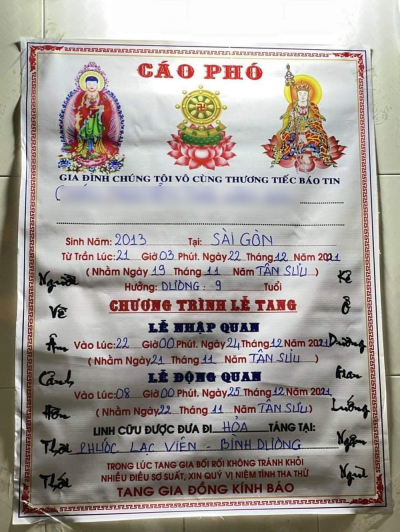 CÁO PHÓ
GIA ĐÌNH CHÚNG TÔI VÔ CÙNG THƯƠNG TIẾC BÁO TIN
Sinh Năm: 2013 Tại: SÀI GÒN
Từ Trần Lúc: 21 Giờ 03 Phút. Ngày 22 Tháng 12 Năm 2021
( Nhằm Ngày 19 Tháng 11 Năm TÂN SỬU )
Hưởng: DƯƠNG : 9 Tuổi
CHƯƠNG TRÌNH LỄ TANG
LỄ NHẬP QUAN
Vào Lúc: 22 Giờ 00 Phút. Ngày 24 Tháng 12 Năm 2021
( Nhằm Ngày 21 Tháng 11 Năm TÂN SỬU )
LỄ ĐỘNG QUAN
Vào Lúc: 08 Giờ 00 Phút. Ngày 25 Tháng 12 Năm 2021
( Nhằm Ngày 22 Tháng 11 Năm TÂN SỬU )
LINH CỮU ĐƯỢC ĐƯA ĐI HỎA TÁNG TẠI:
PHƯỚC LẠC VIÊN - BÌNH DƯƠNG
TRONG LÚC TANG GIA BỐI RỐI KHÔNG TRÁNH KHỎI
NHIỀU ĐIỀU SƠ SUẤT, XIN QUÝ VỊ NIỆM TÌNH THA THỨ
TANG GIA ĐỒNG KÍNH BÁO
Người
Về
Âm
Cảnh
Hồn
Thới
Kẻ
Ở
Dương
Gian
Luống
Ngậm
Ngùi